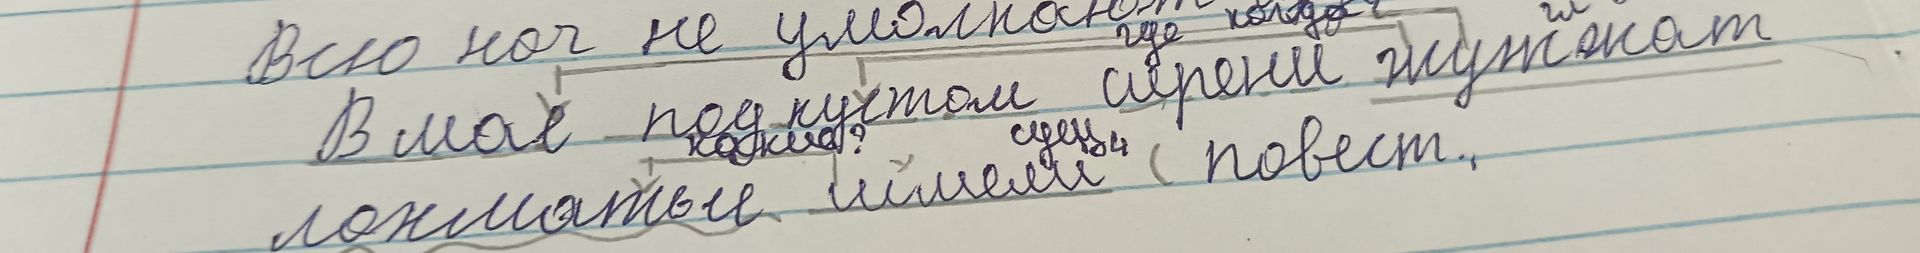 Всю ноч не умолкают
где когда? гл
В мае под кустом сирени жужжат
какие? сущ.
лохматые шмели (повест.,